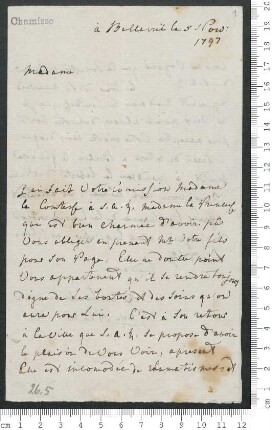 Chamisso
à Bellevue le 3 Nov:
1797
Madame
J'ai fait Votre commission Madame
la Comtesse à S. A. R. Madame la Princesse
qui est bien charmée d'avoir pû
Vous obliger en prenant Mr votre fils
pour son Page. Elle ne doute point
Vous appartenant qu'il se rendra toujours
digne de Ses bontés, et des soins qu'on
aura pour Lui. C'est à Son retour
à la Ville que S. A. R. se propose d'avoir
le plaisir de Vous Voir, à present
Elle est incomodée de rhumatismes et
26.5